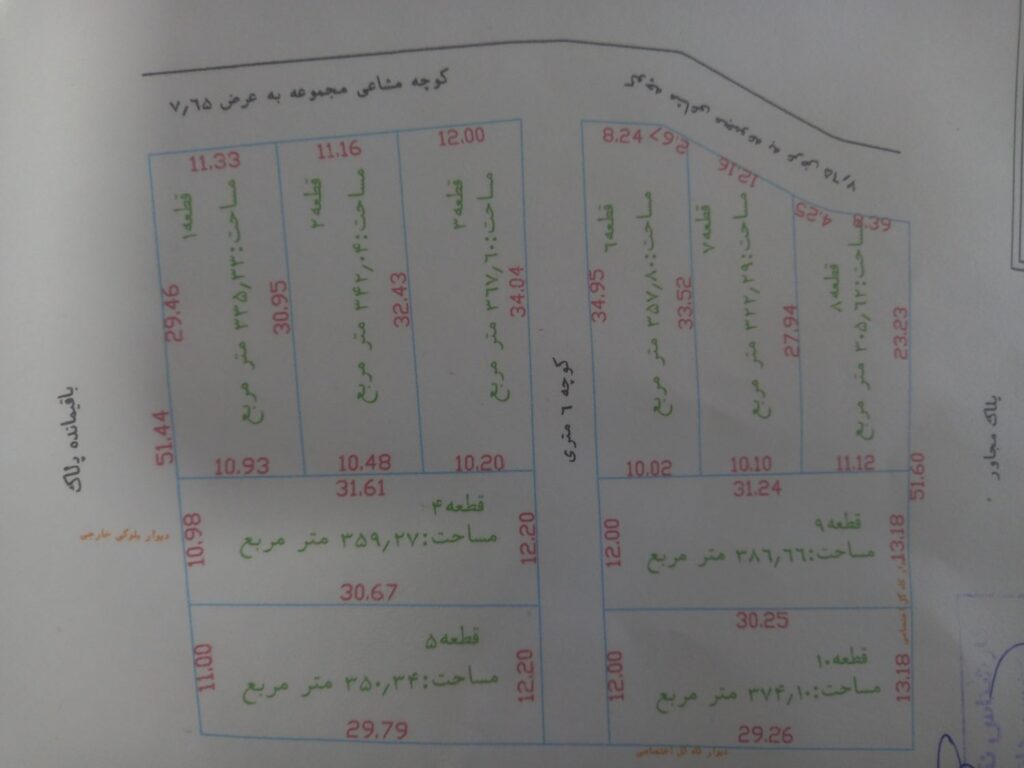 کوچه مشاعی مجموعه به عرض ۷٫۶۵
کوچه مشاعی مجموعه به عرض ۷٫۶۵
11.33
11.16
12.00
8.24
2.67
12.16
4.25
قطعه۱
مساحت:۳۳۵٫۳۳ متر مربع
قطعه۲
مساحت:۳۴۲٫۰۴ متر مربع
قطعه۳
مساحت:۳۶۷٫۶۰ متر مربع
قطعه۶
مساحت:۳۵۷٫۸۰ متر مربع
قطعه۷
مساحت:۳۲۲٫۲۹ متر مربع
قطعه۸
مساحت:۳۰۵٫۶۲ متر مربع
29.46
30.95
32.43
34.04
34.95
33.52
27.94
23.23
کوچه ۶ متری
باقیمانده پلاک
پلاک مجاور
51.44
51.60
10.93
10.48
10.20
10.02
10.10
11.12
31.61
31.24
قطعه۴
مساحت:۳۵۹٫۲۷ متر مربع
قطعه۹
مساحت:۳۸۶٫۶۶ متر مربع
دیوار بلوکی خارجی
10.98
12.20
12.00
13.18
30.67
30.25
قطعه۵
مساحت:۳۵۰٫۳۴ متر مربع
قطعه۱۰
مساحت:۳۷۴٫۱۰ متر مربع
11.00
12.20
12.00
13.18
29.79
29.26
دیوار کاه گل اختصاصی